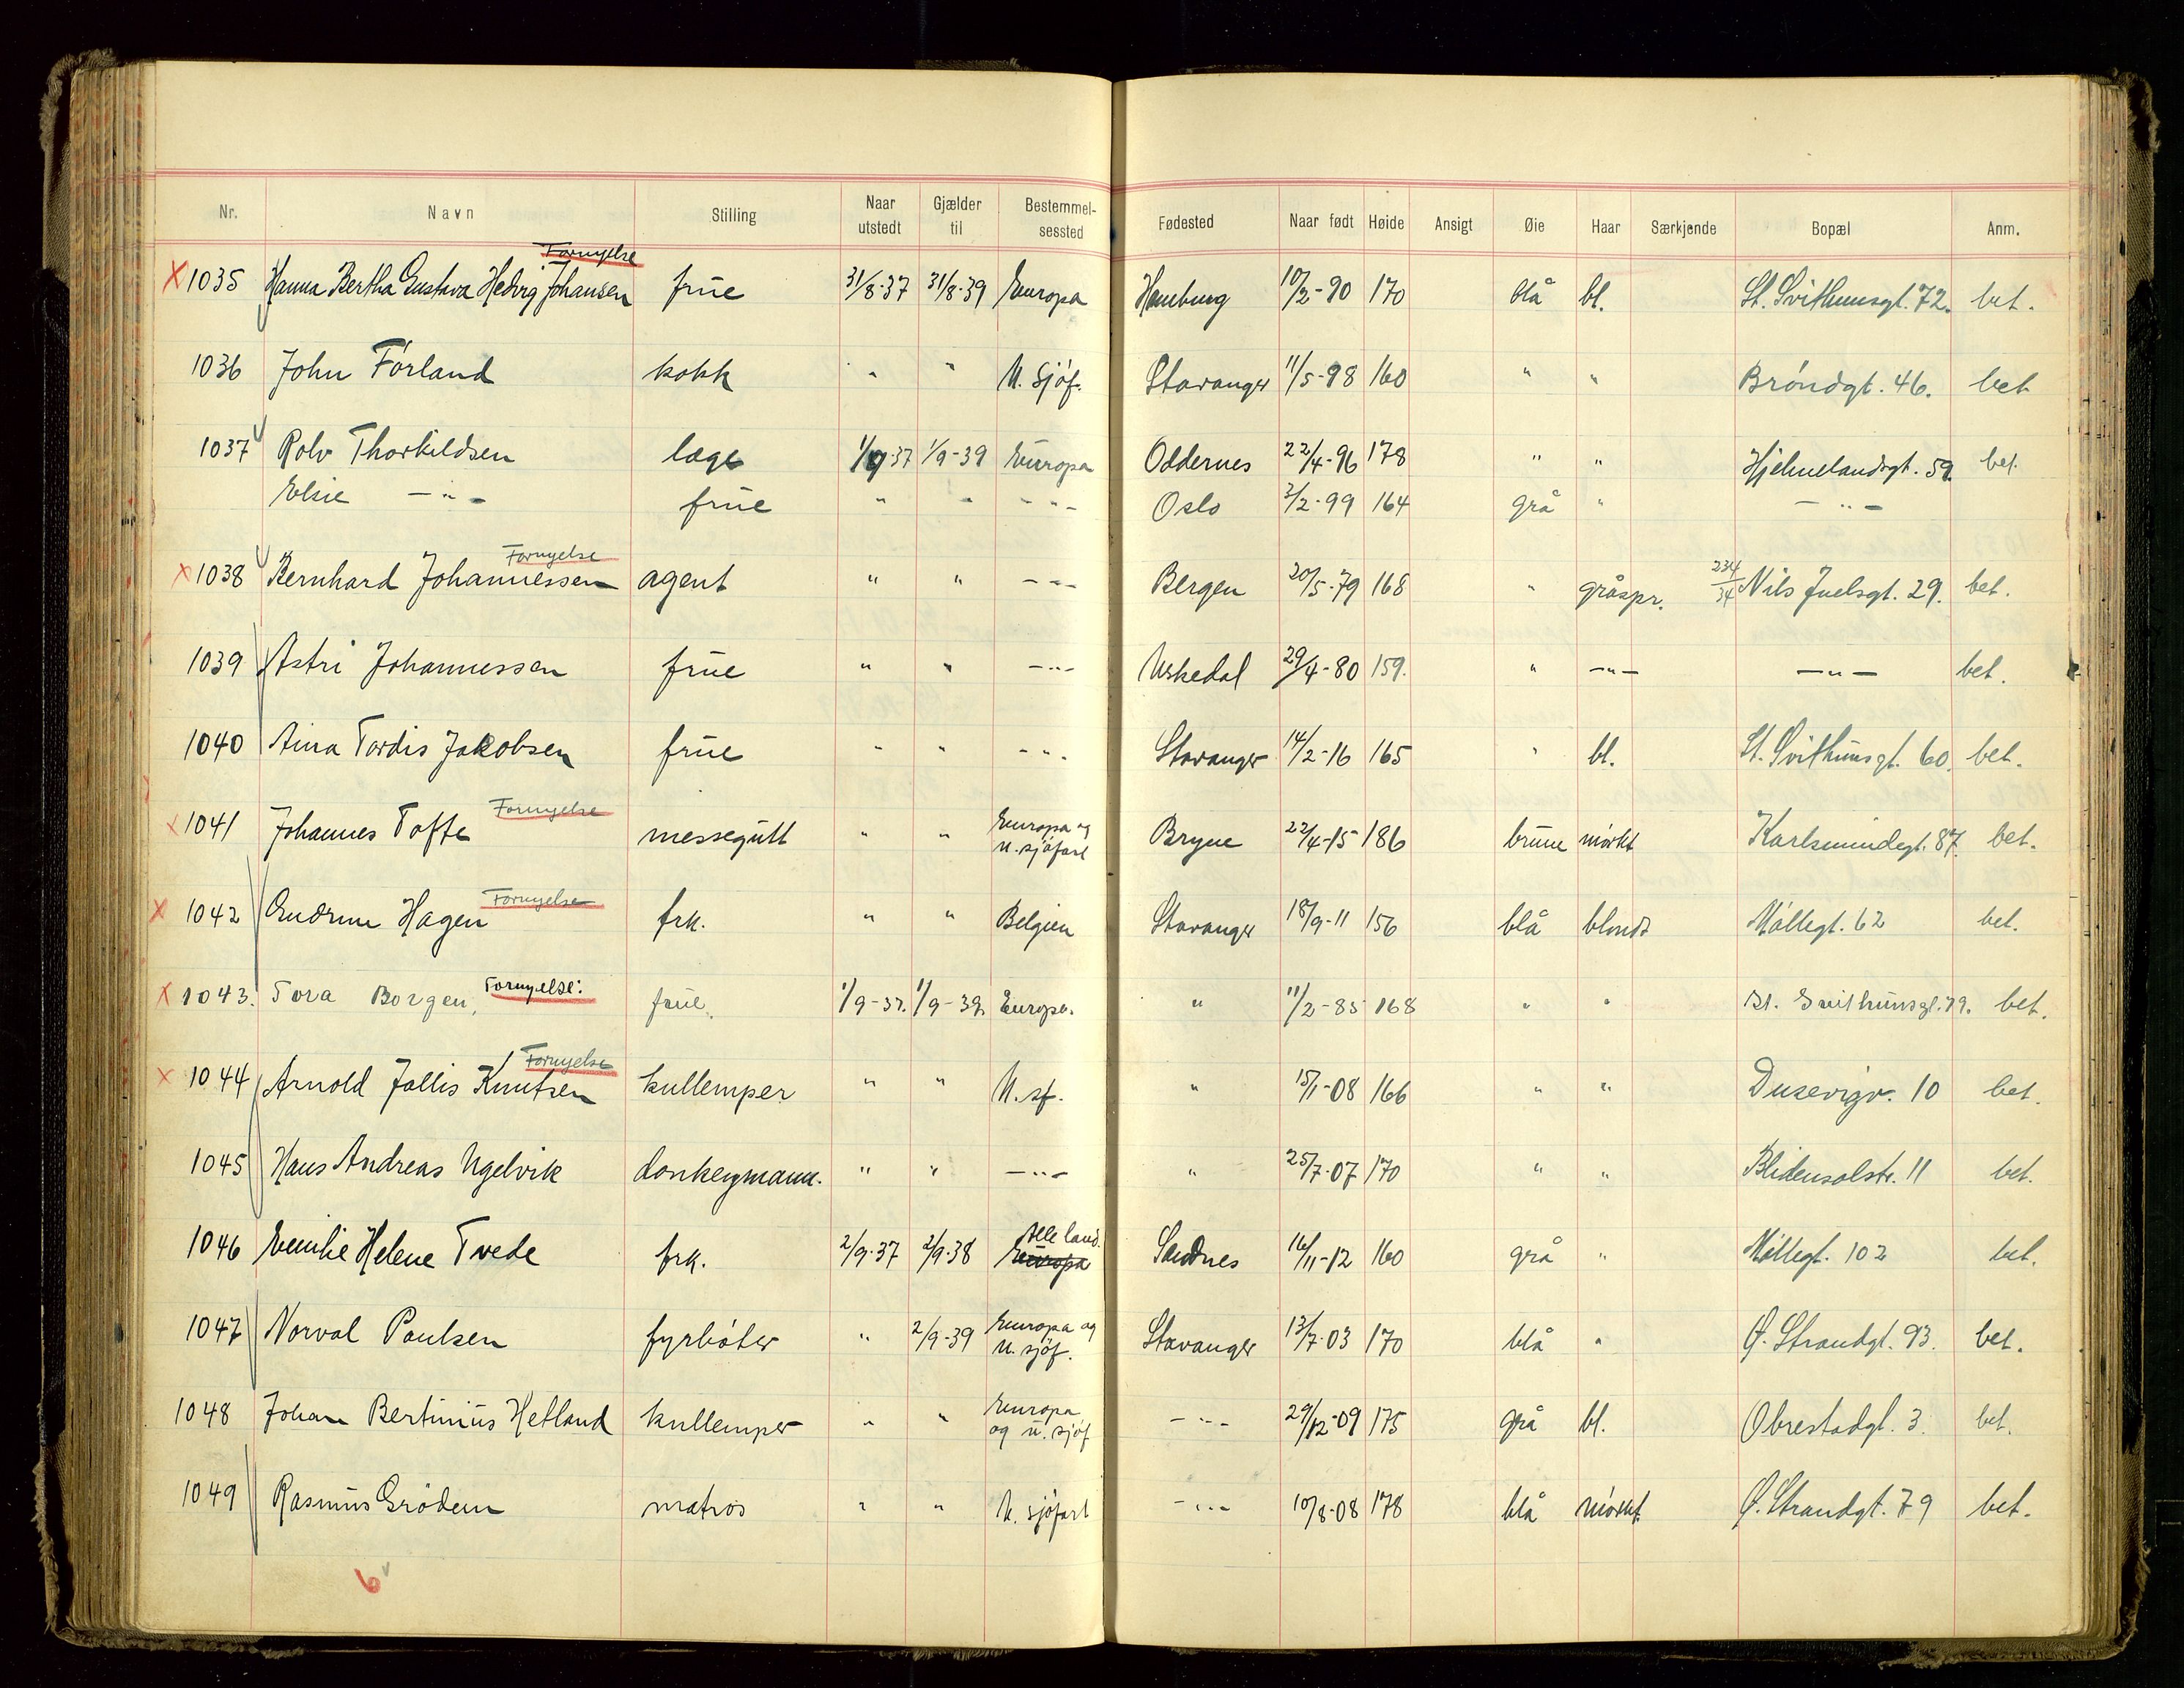 Nr. Navn Stilling Naar utstedt Gjælder til Bestemmelsessted Fødested Naar født Høide Ansigt Øie Haar Særkjende Bopæl Anm.
Fornyelse
X 1035 Hanna Bertha Gustava Hedvig Johansen frue 31/8-37 31/8-39 Europa Hamburg 10/2-90 170 blå bl. St. Svithunsgt. 72. bet.
1036 John Førland kokk " " U. Sjøf. Stavanger 11/5-98 160 " " Brøndgt. 46. bet
1037 Rolv Thorkildsen læge 1/9-37 1/9-39 Europa Oddernes 22/4-96 178 " " Hjelmelandsgt. 59. bet.
Elsie -"- frue " " -"- Oslo 3/2-99 164 grå " -"-
Fornyelse
X 1038 Bernhard Johannessen agent " " -"- Bergen 20/5-79 168 " gråspr. 234/34 Nils Juelsgt. 29. bet.
1039 Astri Johannessen frue " " -"- Uskedal 29/4-80 159. " -"- -"- bet.
1040 Aina Tordis Jakobsen frue " " -"- Stavanger 14/2-16 165 " bl. St. Svithunsgt. 60. bet.
Fornyelse
X 1041 Johannes Tofte messegutt " " Europa og u. sjøfart Bryne 22/4-15 186 brune mørkt Karlsmindegt. 87. bet.
Fornyelse
X 1042 Gudrun Hagen frk. " " Belgien Stavanger 18/9-11 156 blå blondt Møllegt. 62 bet.
X 1043. Tora Borgen, Fornyelse: frue. 1/9-37. 1/9-39. Europa. " 11/2-85 168 " " St. Svithunsgt. 79. bet.
Fornyelse
X 1044 Arnold Jallis Knutsen kullemper " " U. sf. " 15/1-08 166 " " Dusevigv. 10 bet.
1045 Hans Andreas Ugelvik donkeymann. " " -"- " 25/7-07 170 " " Blidensolstr. 11 bet.
1046 Emilie Helene Tvede frk. 2/9-37 2/9-38 Alle land. Europa Sandnes 16/11-12 160 grå " Møllegt. 102 bet.
1047 Norval Paulsen fyrbøter " 2/9-39 Europa og u. sjøf. Stavanger 13/7-03 170 blå " Ø. Strandgt. 93. bet.
1048 Johan Bertinius Hetland kullemper " " Europa og u. sjøf -"- 29/12-09 175 grå bl. Obrestadgt. 3. bet.
1049 Rasmus Grødem matros " " U. sjøfart -"- 10/8-08 178 blå mørkt. Ø. Strandgt. 79 bet.
6